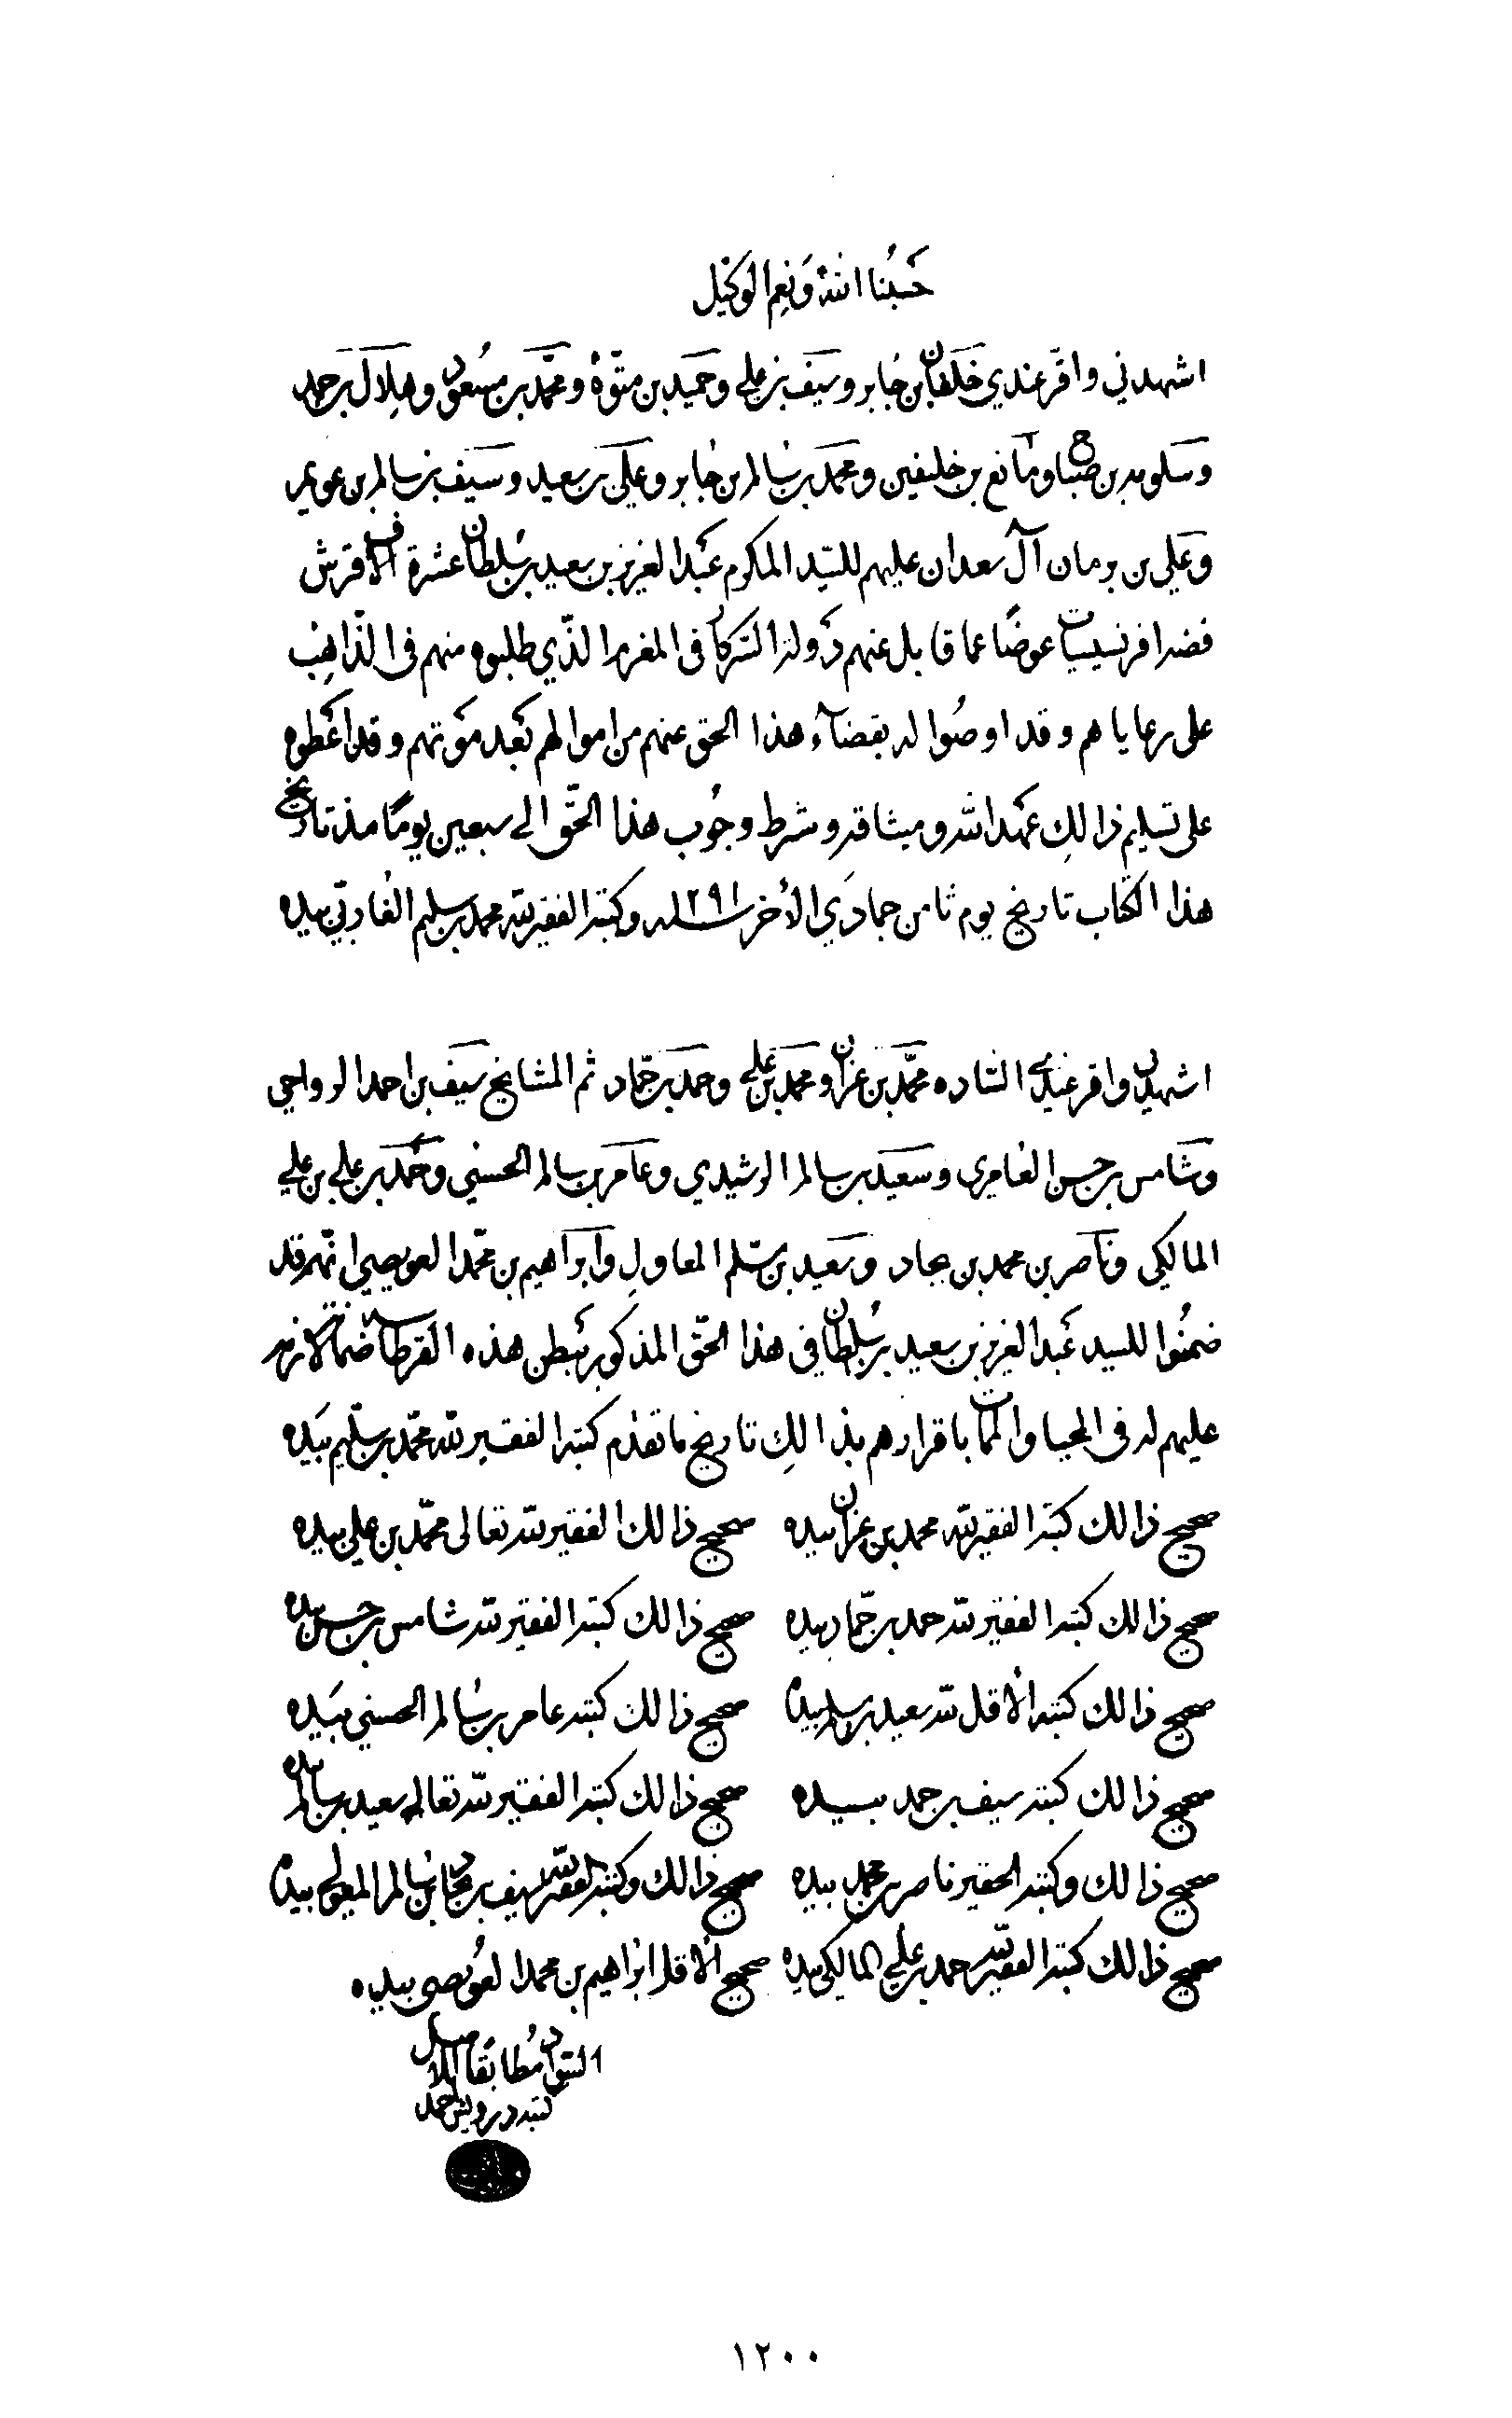 حَسْبُنا اللهُ وَنِعِم الوَكيل
اشهدني واقرّ عندي خَلفان بن جابر وسَيف بن علي وحَميد بن متوّه ومحمّد بن مسعُود وهِلَال بن حمد
وسَلو بن صباح ومانع بن خليفين ومحمَد بن سالم بن جابر وعلَي بن سعيد وسَيف بن سالم بن عويمر
وعَلي بن بن ومان آل سعدان عليهم للسّيد المكرم عَبد العزيز بن سعيد بن سُلطان عشرة الاف قرش
فضه افرنسيسيات عوضًا عما قابل عنهم دَولة التركان في المغرم الذّي طلبوه منهم في الذّاهِب
على رعاياهم وقد اوصُوا له بقضآء هذا الحق عنهم من اموالهم بَعد مَوتهم وقد اعَطوه
على تسليم ذالِك عَهد الله وميثاقه وشرط وجُوب هذا الحّق الى سبعين يومًا مذ تاريخ
هذا الكتاب تاريخ يوم ثامن جمادَي الأخر سنة ١٢٩١ وكتبه الفقير لله محمد بن سليم الغاربّي بيده
اشهدني واقر عندي السّاده محمَّد بن عزان ومحمَد بن علي وحمَد بن حمّاد ثم المشايخ سَيف بن احمد الرواحي
وشَامس بن حسن العامري وسَعيد بن سالم الرشيدي وعَامر بن سالم الحسني وحَمَد بن علي بن علي
المالكي ونَاصر بن محمد بن بجاد وسَعيد بن سلّم المعاولِ وابرَاهيم بن محمّد العويصي انّهم قد
ضمنُوا للسيد عَبد العزيز بن سعيد بن سُلطان في هذا الحّق المذكور بَبطن هذه القرطاسة ضمانة لازمه
عليهم له في المحيا والممات باقرارهم بذالِك تاريخ ما تقدم كتبه الفقير لله محمّد بن سليّم بيَده
صحيح ذالك كتبه الفقير لله محمد بن عزان بيده صحيح ذالك الفقير لله تعالى محمّد بن علي بيده
صحيح ذالك كتبه الفقير لله حمد بن حمّاد بيده صحيح ذالك كتبه الفقير لله شامس بن حسن بيده
صحيح ذالك كتبه الأقل لله سعيد بن بيده صحيح ذالك كتبه عامر بن سَالم الحسني بيَده
صحيح ذالك كتبه سيف بن حمد بيده صحيح ذالك كتبه الفقير لله تعالى سعيد بن سالم بيده
صحيح ذالك وكتبه الحقير ناصر بن محمد بيده صحيح ذالك وكتبه الفقير لله سيف بن بن سالم المعولي بيده
صحيح ذالك كتبه الفقير لله حمد بن علي المالكي بيده صحيح الاقل ابرَاهيم بن محمد العوُيصي بيده
السّواد مُطابقًا للاصل
كتبه درويش احمد
١٢٠٠